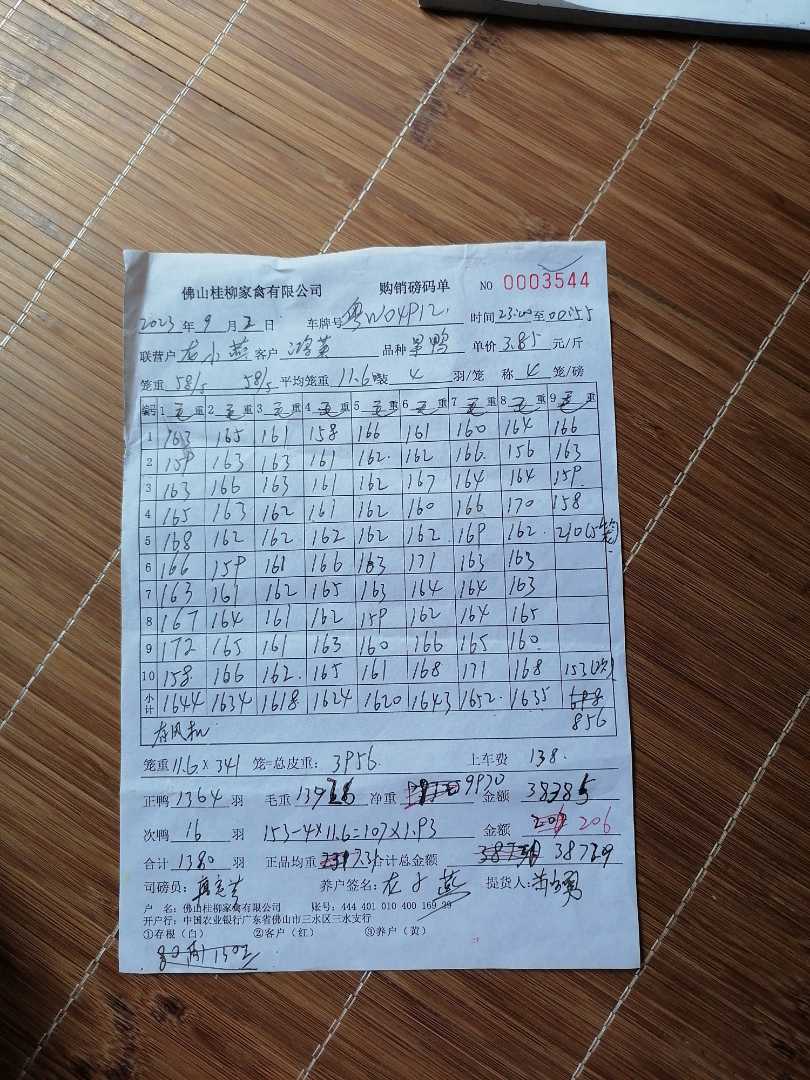 佛山桂柳家禽有限公司 购销磅码单 NO 0003544
2023年9月2日 车牌号 粤W04P12. 时间 23:00至00:55
联营户 小燕 客户 鸿 品种 旱鸭 单价 3.85 元/斤
笼重 58/5 58/5 平均笼重 11.6 装 4 羽/笼 称 4 笼/磅
编号 1 毛重 2 毛重 3 毛重 4 毛重 5 毛重 6 毛重 7 毛重 8 毛重 9 毛重
1 163 165 161 158 166 161 160 164 166
2 159 163 163 161 162. 162 166. 156 163
3 163 166 163 161 162 167 164 164 159.
4 165 163 162 161 162 160 166 170 158
5 168 162 162 162 162 162. 169 162. 210(5笼)
6 166 159 161 166 163 171 163 163
7 163 161 162 165 163 164 164 163
8 167 164 161 162 159 162 164 165
9 172 165 161 163 160 166 165 160.
10 158. 166 162. 165 161 168 171 168 153(次)
小计 1644 1634 1618 1624 1620 1643 1652. 1635
856
笼重 11.6×341 笼=总皮重: 3956. 上车费 138.
正鸭 1364 羽 毛重 净重 9930 金额 38385
次鸭 16 羽 153-4×11.6=107×1.93 金额 206
合计 1380 羽 正品均重 合计总金额 38729
司磅员: 养户签名: 小燕 提货人:
户 名: 佛山桂柳家禽有限公司 账号: 444 401 010 400 169 99
开户行: 中国农业银行广东省佛山市三水区三水支行
①存根(白) ②客户(红) ③养户(黄)